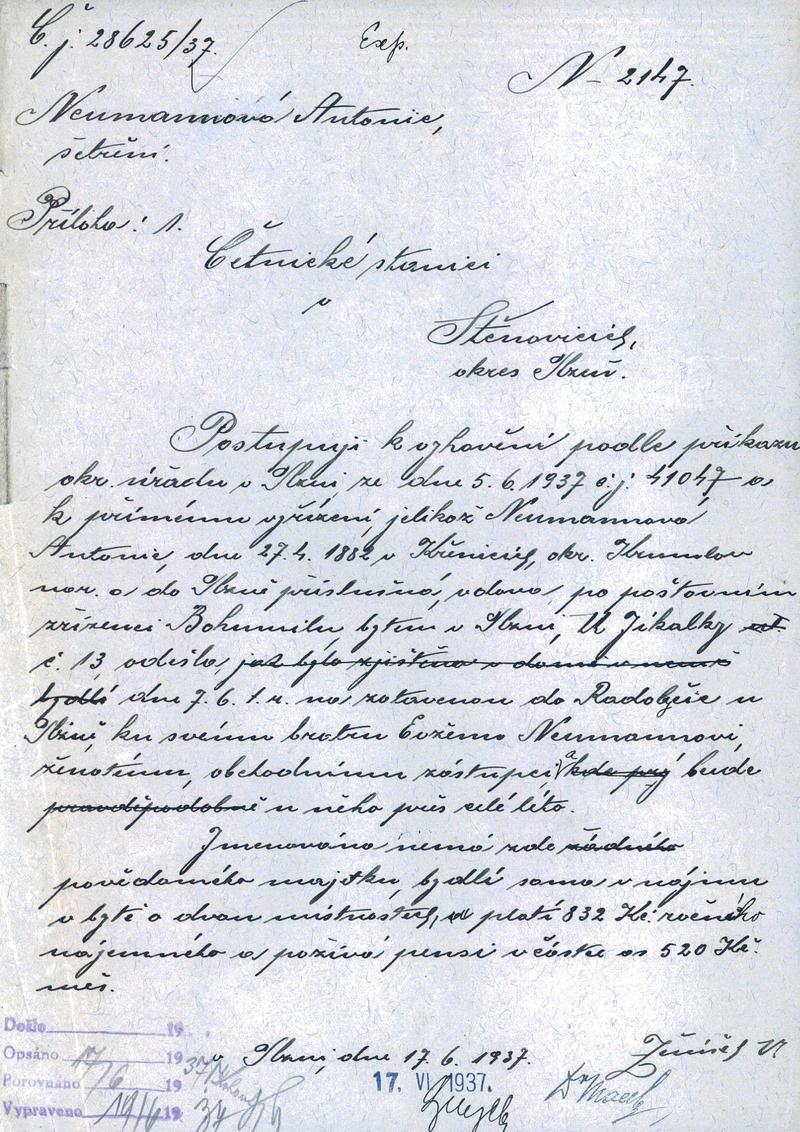 Č. j. 28625/37.
Exp.
N- 2147.
Neumannová Antonie,
šetření.
Příloha: 1.
Četnické stanici
v
Štěnovicích,
okres Plzeň.
Postupuji k vyhovění podle příkazu
okr. úřadu v Plzni ze dne 5. 6. 1937 č. j. 41047 a
k přímému vyřízení, jelikož Neumannová
Antonie, dne 27. 4. 1882 v Křenicích, okr. Krumlov
nar. a do Plzně příslušná, vdova, po poštovním
zřízenci Bohumilu, bytem v Plzni, U Jíkalky
č. 13, odešla, jak bylo zjištěno v domě nemá
bydlí dne 7. 6. t. r. na zotavenou do Radobyčic u
Plzně, ku svému bratru Evženu Neumannovi,
ženatému, obchodnímu zástupci, a kde prý bude
pravděpodobně u něho přes celé léto.
Jmenovaná nemá zde žádného
povědomého majetku, bydlí sama v nájmu
v bytě o dvou místnostech, platí 832 Kč ročního
nájemného a požívá pensi v částce as 520 Kč.
měs.
v Plzni, dne 17. 6. 1937.
17. VI. 1937.
Došlo 19
Opsáno 17 19 37
Porovnáno /6 19
Vypraveno 19/6 19 37